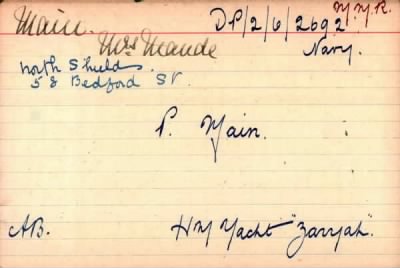 M.M.R.
Main. DP/2/6/2692
Mrs Maude Navy.
North Shields.
58 Bedford St.
P. Main.
AB. HM Yacht "Zaryah".